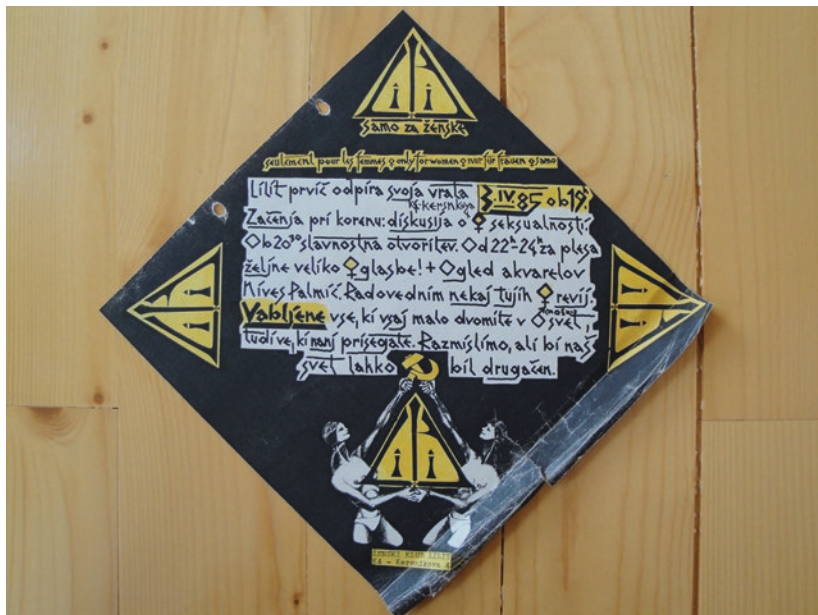 Samo za ženske
seulement pour les femmes ♀ only for women ♀ nur für frauen ♀ samo
Lilit prvič odpira svoja vrata 3.IV.85 ob 19h
K4-Kersnkova
Začenja pri korenu: diskusija o ♀ seksualnosti.
Ob 20³⁰ slavnostna otvoritev. Od 22h-24h za plesa
željne veliko ♀ glasbe! + Ogled akvarelov
Nives Palmić. Radovednim nekaj tujih ♀ revij.
Vabljene vse, ki vsaj malo dvomite v ◇ svet,
tudi ve, ki nanj prisegate. Razmislimo, ali bi naš
svet lahko bil drugačen.
ŽENSKI KLUB LILIT
K4 - Kersnikova 4